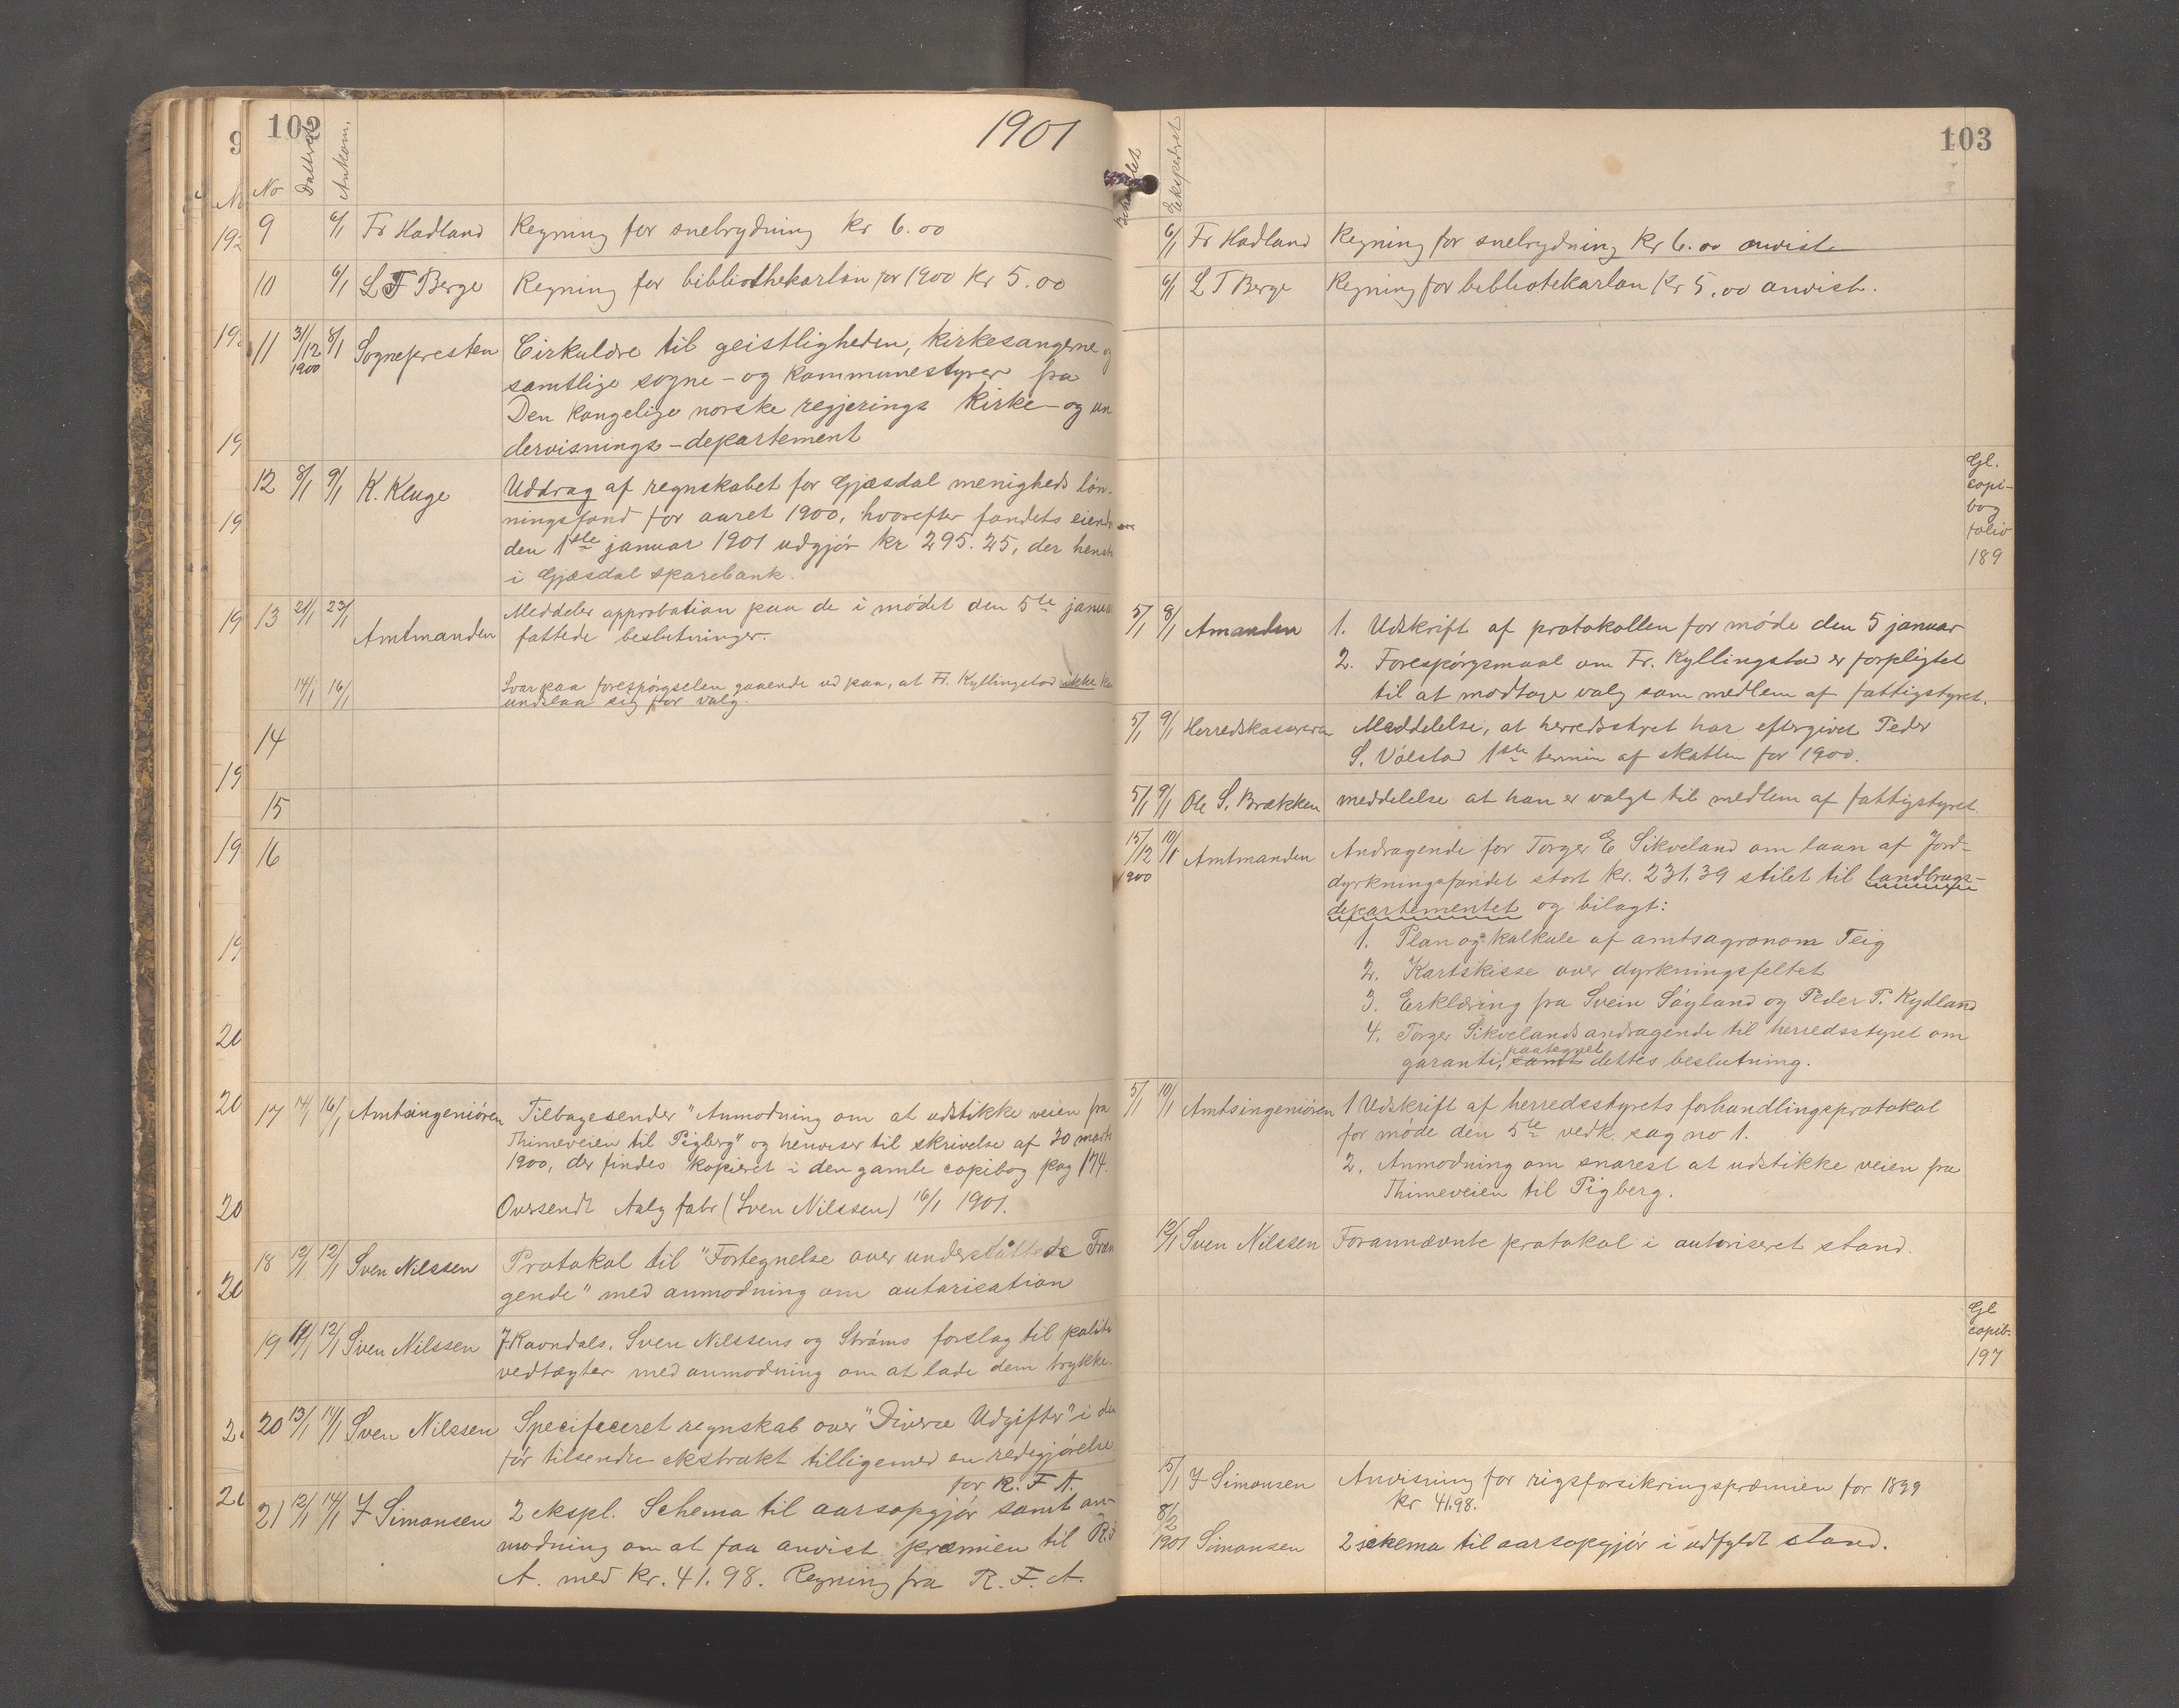 102
1901
No
Ankom.
9 6/1 Fr Hadland Regning for snebrydning kr 6.00
10 6/1 L T Berge Regning for bibliothekarløn for 1900 kr 5.00
11 31/12 1900 8/1 Sognepresten Cirkulære til geistligheden, kirkesangerne og
samtlige sogne- og kommunestyrer fra
Den kongelige norske regjerings Kirke- og un
dervisnings-departement
12 8/1 9/1 K. Kluge Uddrag af regnskabet for Gjæsdal menigheds løn-
ningsfond for aaret 1900, hvorefter fondets eiend
den 1ste januar 1901 udgjør kr 295.25, der henst
i Gjæsdal sparebank.
13 21/1 23/1 Amtmanden Meddeler approbation paa de i mødet den 5te janua
fattede beslutninger.
14/1 16/1 Svar paa forespørgselen gaaende ud paa, at Fr. Kyllingstad ikke ka
undslaa sig for valg.
14
15
16
17 14/1 16/1 Amtsingeniøren Tilbagesender "Anmodning om at udstikke veien fra
Thimeveien til Pigberg" og henviser til skrivelse af 30 marts
1900, der findes kopieret i den gamle copibog pag 174.
Oversendt Aalg fabr (Sven Nilssen) 16/1 1901.
18 12/1 12/1 Sven Nilssen Protokol til "Fortegnelse over understøttede Træn
gende" med anmodning om autorisation
19 11/1 12/1 Sven Nilssen J. Ravndals, Sven Nilssens og Strøms forslag til politi
vedtægter med anmodning om at lade dem trykke.
20 13/1 14/1 Sven Nilssen Specificeret regnskab over "Diverse Udgifter" i den
før tilsendte ekstrakt tilligemed en redegjørelse
for R. F. A.
21 12/1 14/1 F Simonsen 2 ekspl. Schema til aarsopgjør samt an-
modning om at faa anvist præmien til R.F
A. med kr. 41.98. Regning fra R. F. A.
103
Ekspederet
6/1 Fr Hadland Regning for snebrydning kr 6.00 anvist
6/1 L T Berge Regning for bibliotekarløn kr 5.00 anvist.
Gl.
copi-
bog
folio
189
5/1 8/1 Amanden 1. Udskrift af protokollen for møde den 5 januar
2. Forespørgsmaal om Fr. Kyllingstad er forpligtet
til at modtage valg som medlem af fattigstyret.
5/1 9/1 Herredskassereren Meddelelse, at herredsstyret har eftergivet Peder
S. Vølstad 1ste termin af skatten for 1900.
5/1 9/1 Ole S. Brækken meddelelse at han er valgt til medlem af fattigstyret.
15/12 1900 10/1 Amtmanden Andragende for Torger E Sikveland om laan af Jord-
dyrkningsfondet stort kr. 231.39 stilet til landbrugs-
departementet og bilagt:
1. Plan og kalkule af amtsagronom Teig
2. Kartskisse over dyrkningsfeltet
3. Erklæring fra Svein Søyland og Peder P. Kydland
4. Torger Sikvelands andragende til herredsstyret om
garanti, samt paategnet dettes beslutning.
5/1 10/1 Amtsingeniøren 1 Udskrift af herredsstyrets forhandlingsprotokol
for møde den 5te vedk. sag no 1.
2. Anmodning om snarest at udstikke veien fra
Thimeveien til Pigberg.
12/1 Sven Nilssen Forannævnte protokol i autoriseret stand.
Gl
copib.
197
15/1 F Simonsen Anvisning for rigsforsikringspræmien for 1899
kr 41.98.
8/2 1901 Simonsen 2 skema til aarsopgjør i udfyldt stand.